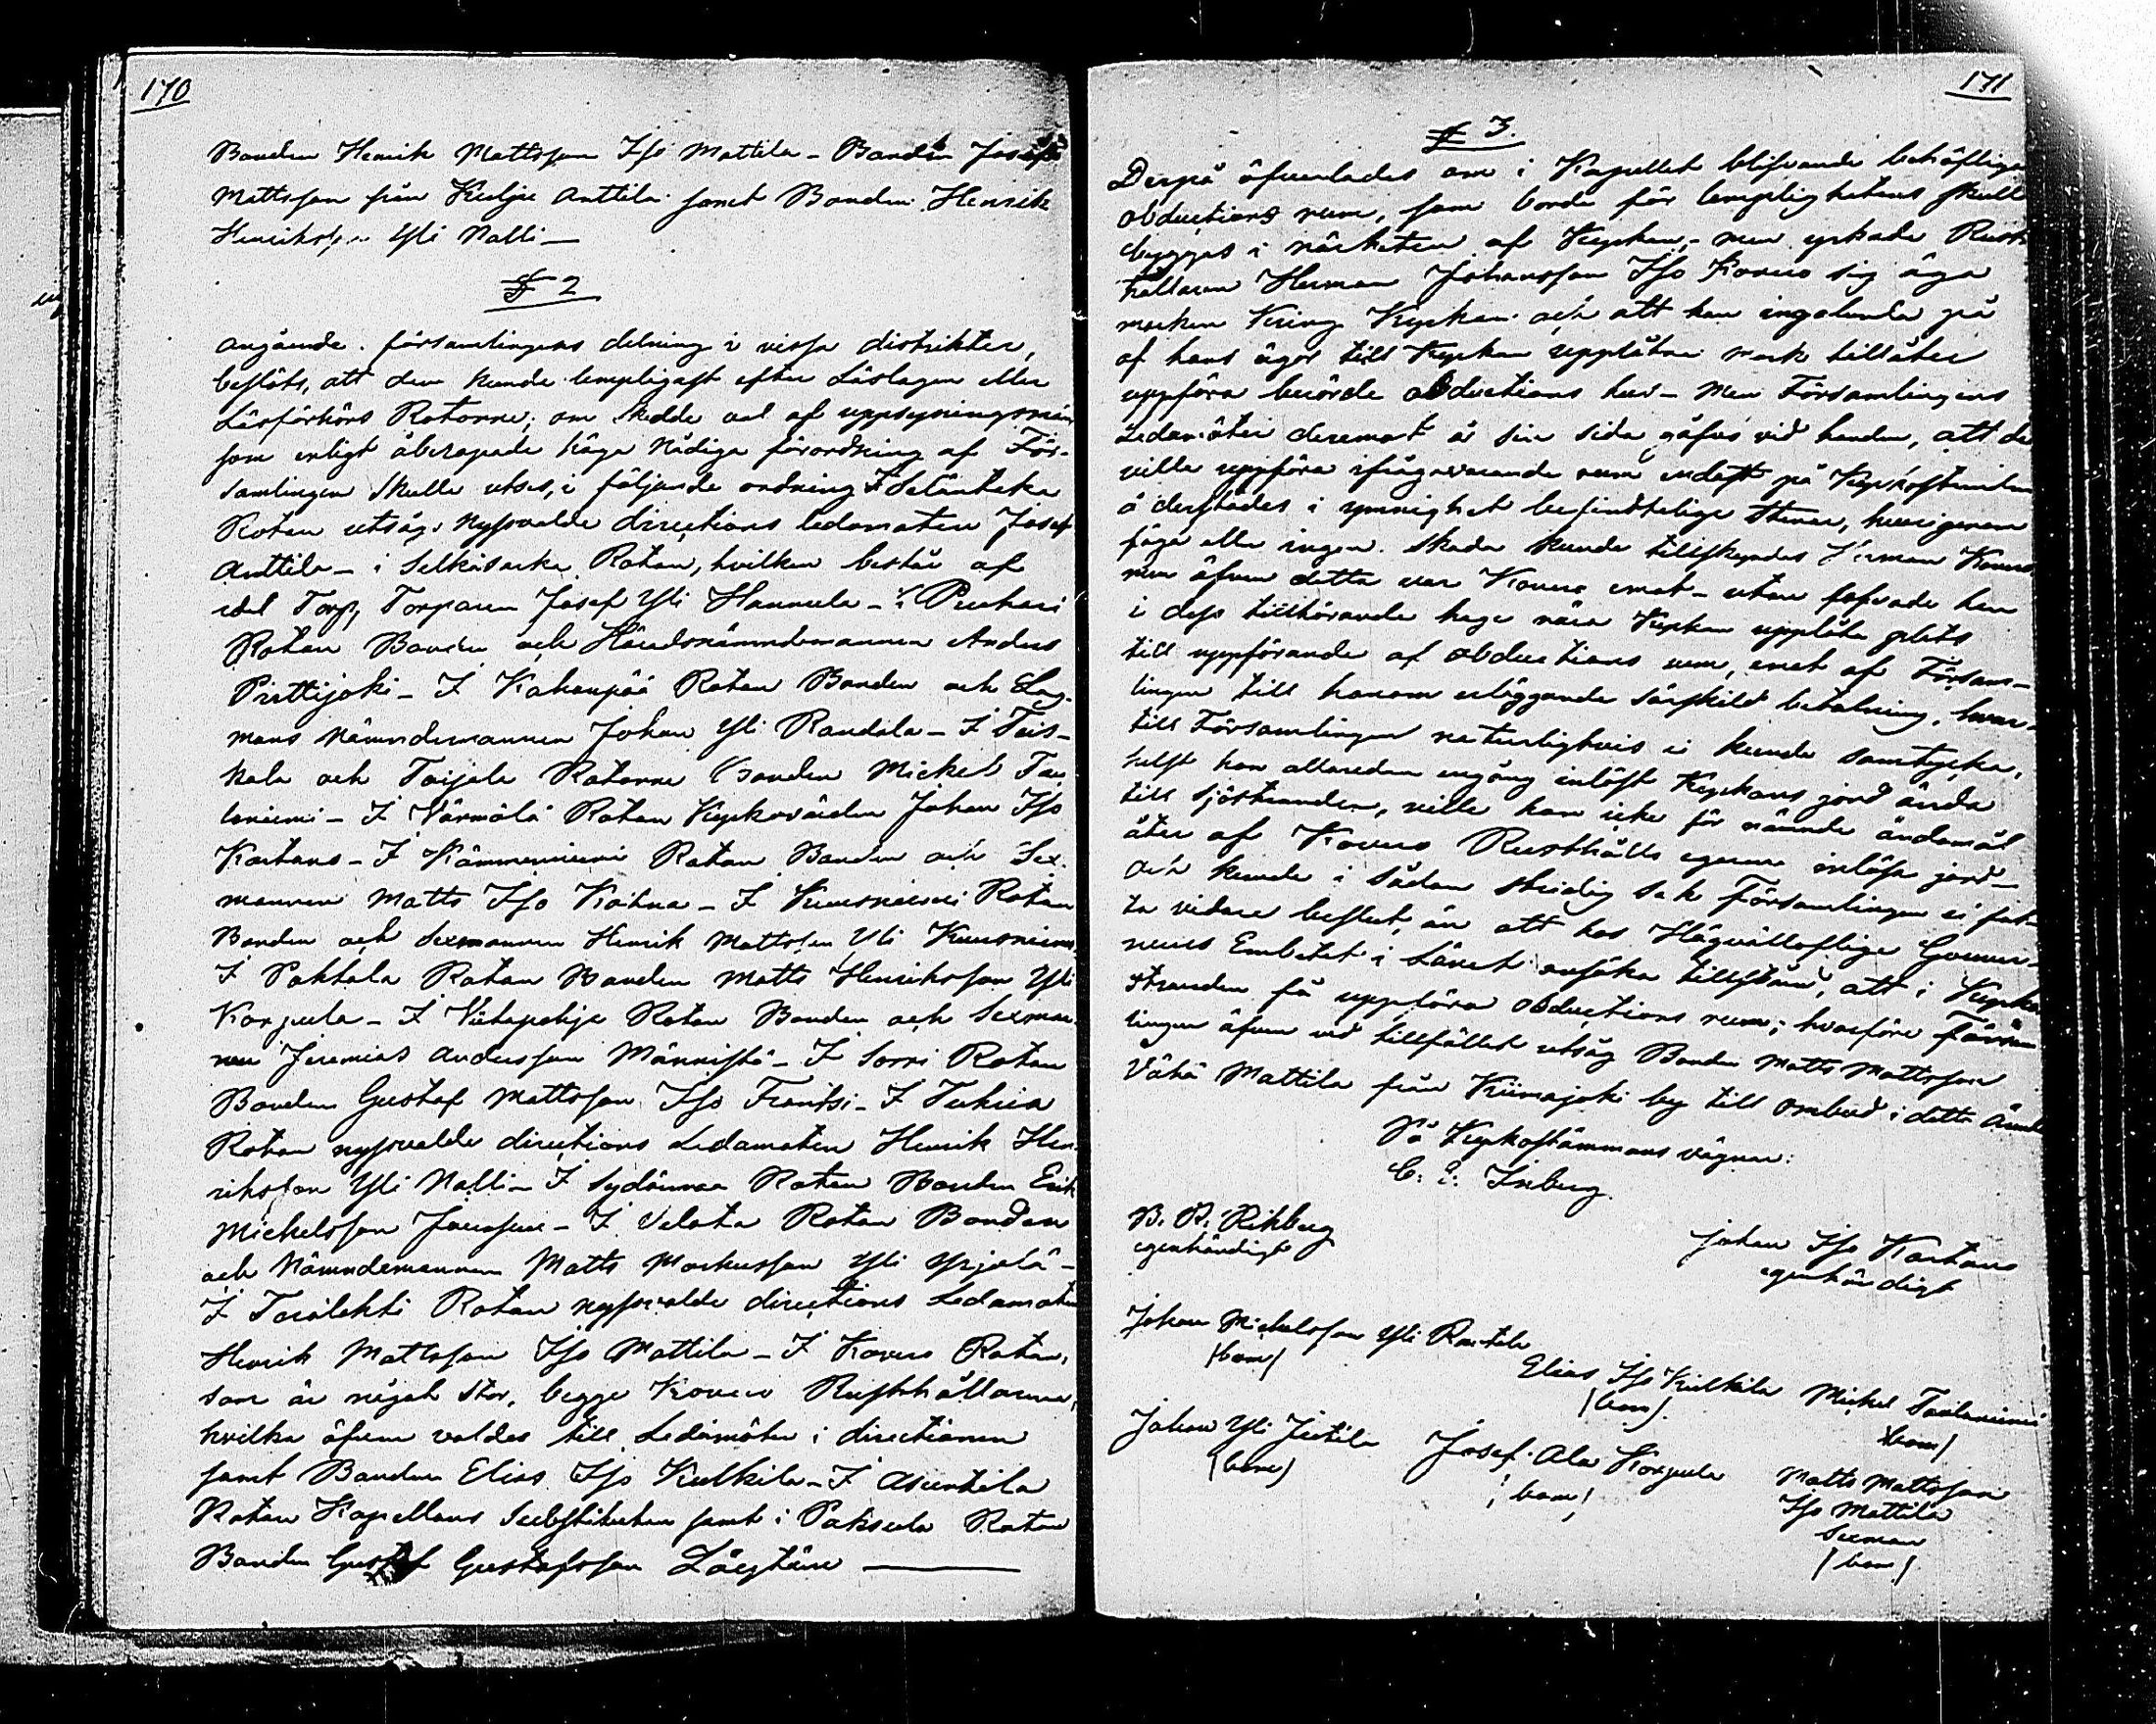 170
Bonden Henrik Mattsson Iso Mattila - Bonden Josef
Mattsson från Kuljus Anttila samt Bonden Henrik
Henriksson Yli Nalli -
§ 2
Angående församlingens delning i vissa distrikter,
beslöts, att den kunde lempligast efter Läslagen eller
Läsförhörs Rotorne, om skedde val af uppsyningsmän
som enligt åberopade höga Nådiga förordning af För-
samlingen skulle utses, i följande ordning I
Rotan utsågs nyssvalde directions ledamoten Josef
Anttila - i Selkäsarka Rotan, hvilken består af
idel Torp, Torparen Josef Yli Hannula - i
Rotan Bonden och Häradsnämndemannen Anders
Pirttijoki - I Kahanpää Rotan Bonden och Lag-
mans Nämndemannen Johan Yli Randala - I Tois-
kala och Taijala Rotorne Bonden Mickel Taa-
laniemi - I Värmälä Rotan Kyrkovärden Johan Iso
Kartano - I Kämmenniemi Rotan Bonden och Sex-
mannen Matts Iso Kötna - I Kuusniemi Rotan
Bonden och Sexmannen Henrik Mattsson Yli Kuusniemi
I Pohtola Rotan Bonden Matts Henriksson Yli
Korpula - I Viitapohja Rotan Bonden och Sexman-
nen Jeremias Andersson Männistö - I Sorri Rotan
Bonden Gustaf Mattsson Iso Frantsi - I Terhia
Rotan nyssvalde directions Ledamoten Henrik Hen-
riksson Yli Nalli - I Sydänmaa Rotan Bonden Erik
Michelsson - I Velata Rotan Bonden
och Nämndemannen Matts Markusson Yli Yrjölä -
I Terälahti Rotan nyssvalde directions Ledamoten
Henrik Mattsson Iso Mattila - I Kovero Rotan,
som är något stor, begge Kovero Rusthållarene,
hvilka äfven valdes till Ledamöter i directionen
samt Bonden Elias Iso Kulkila - I Asuntila
Rotan Kapellans Substituten samt i Paksula Rotan
Bonden Gustaf Gustafsson Löytäne
171
§ 3.
Derpå öfverlades om i Kapellet blifvande behöflige
obductions rum, som borde för lemplighetens skull
byggas i närheten af Kyrkan, - men yrkade Rust-
hållaren Herman Johansson Iso Kovero sig äga
marken kring Kyrkan och att han ingalunda på
af hans ägor till Kyrkan upplåtne mark tillåter
uppföra berörde obductions hus - Men Församlingens
Ledamöter deremot å sin sida gåfvo vid handen, att de
ville uppföra ifrågavarande rum endast på
å derstädes i ymnighet befindtelige stenar, hvarigenom
föga eller ingen skada kunde tillskyndas Herman Kovero
men äfven detta var Kovero emot - utan han
i dess tillhörande hage nära Kyrkan upplåta plats
till uppförande af obductions rum, emot af Försam-
lingen till honom erläggande särskild betalning, hvar-
till Församlingen naturligtvis ei kunde samtycka,
helst hon allaredan engång inlöst Kyrkans jord ända
till sjöstranden, ville hon icke för nämnde ändamål
åter af Kovero Rusthålls egarne inlösa jord -
och kunde i sådan stridig sak Församlingen ei fat-
ta vidare beslut, än att hos Högvällofliga Guver-
neurs Embetet i Länet ansöka tillstånd, att i Kyrko
stranden få uppföra obductions rum; hvarföre Försam-
lingen äfven vid tillfället utsåg Bonden Matts Mattsson
Vähä Mattila från Kiimajoki by till ombud i detta
På Kyrkostämmans vägnar:
C. E. Inberg.
B. R. Rikberg
egenhändigt
Johan Iso Kartano
egenhändigt
Johan Michelsson Yli Rantala
(bom)
Elias Iso Kulkila
(bom)
Mickel Taalaniemi
(bom)
Johan Yli Jutila
(bom)
Josef Ala Korpula
(bom)
Matts Mattsson
Iso Mattila
Sexman
(bom)